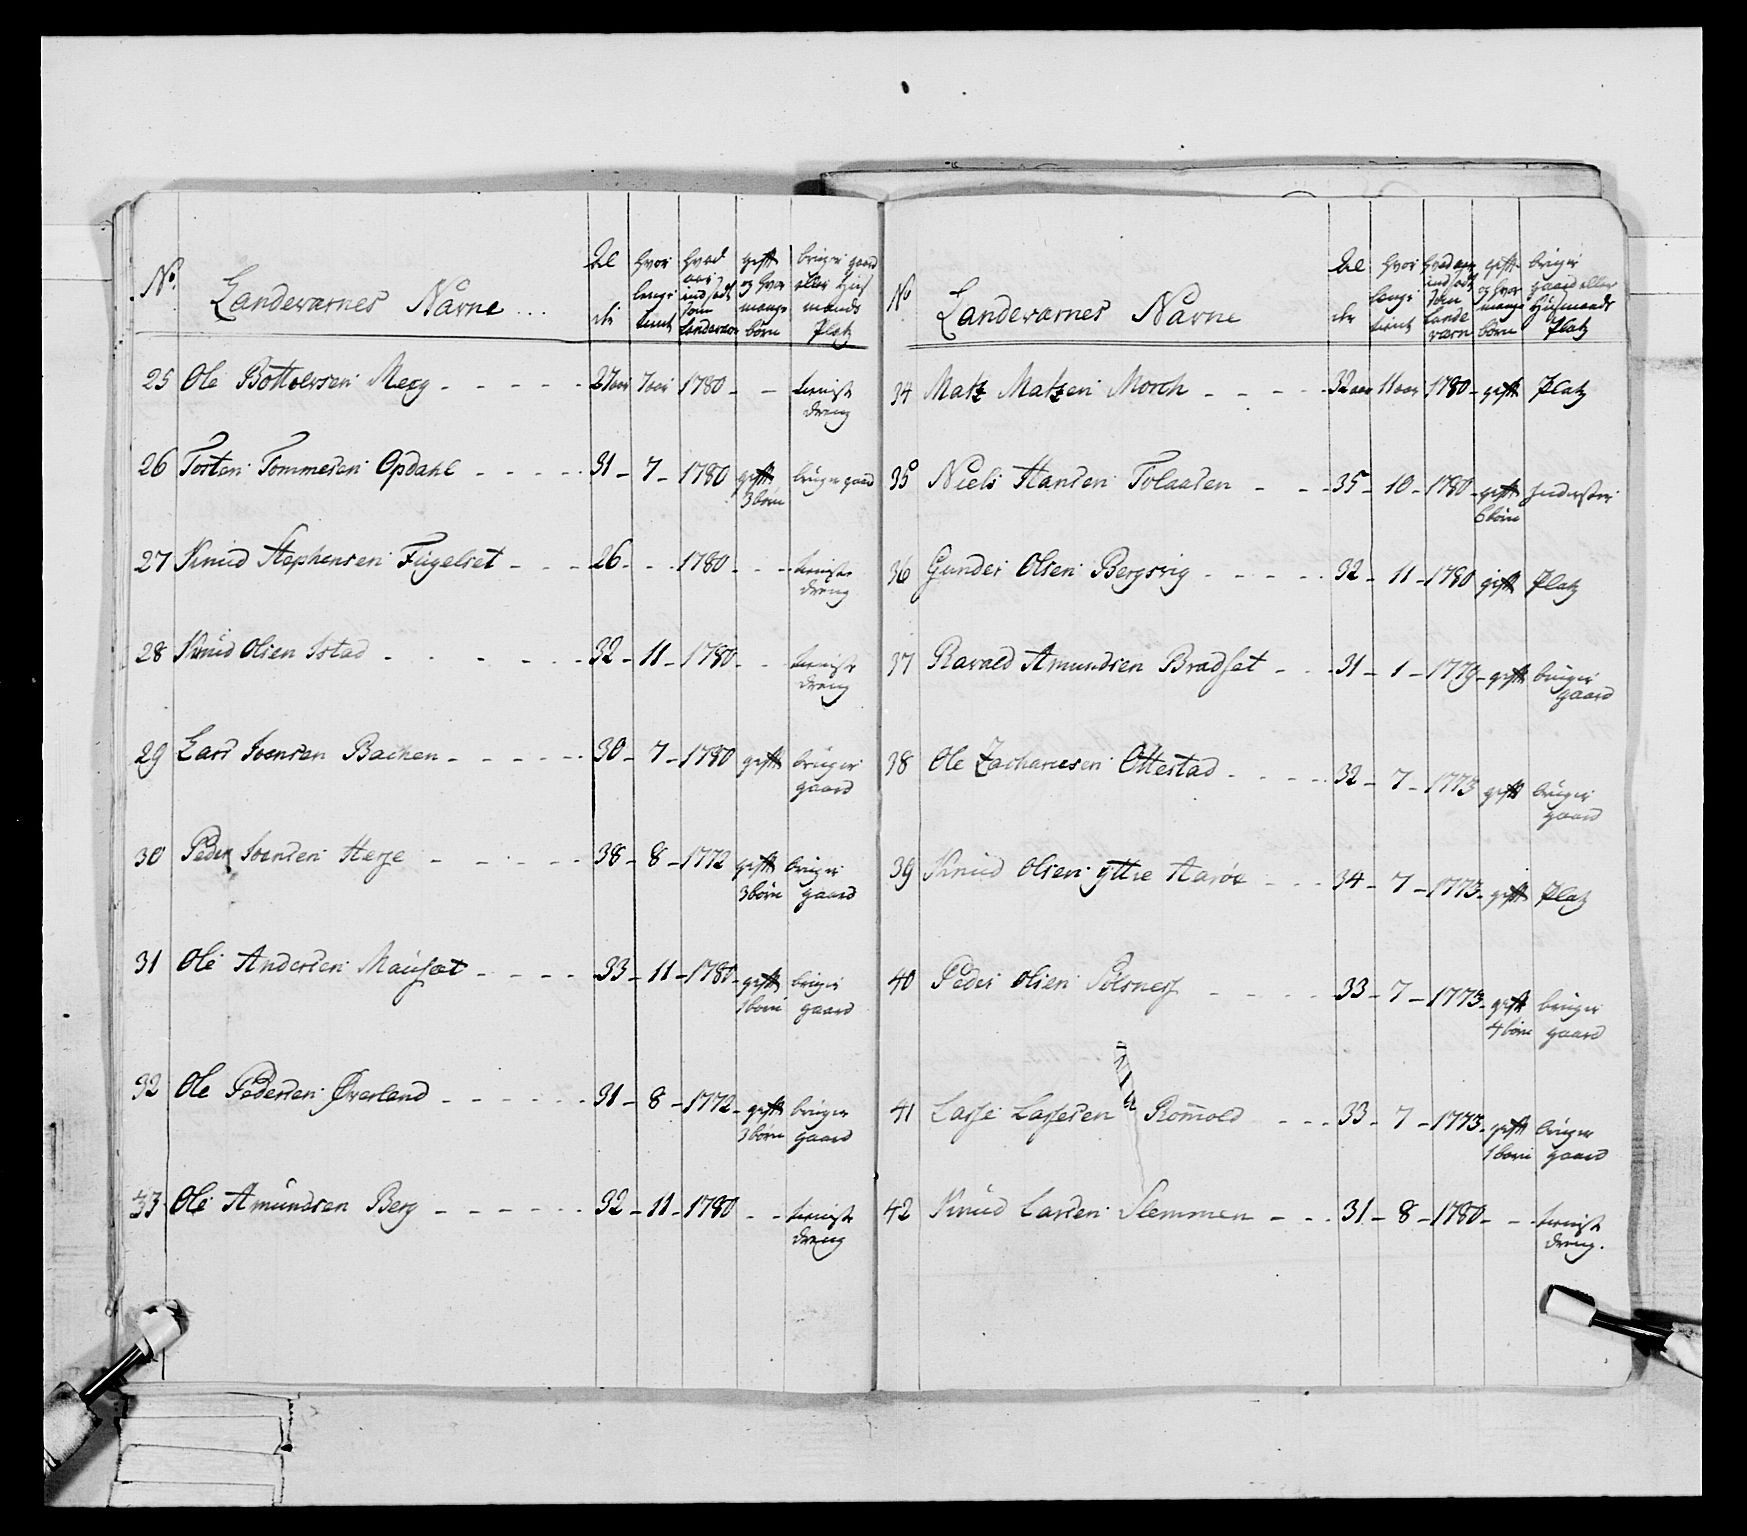 No. Landeværnes Navne ... Al der hvor lenge tient hvad aar indsadt som landeværn gift og hvor mange børn bruger gaard eller Huusmands Platz
25 Ole Bottolvsen Meeg - - - - - 27 aar 7 aar 1780 - - tieniste dreng
26 Tosten Tommesen Opdahl - - - - - 31 - 7 - 1780 gift 3 børn bruger gaard
27 Knud Stephensen Fugelset - - - 26 - - - 1780 - - - tieniste dreng
28 Knud Olsen Istad - - - - - - 32 - 11 - 1780 - - - tieniste dreng
29 Lars Svensen Bachen - - - - - - 30 - 7 - 1780 gift bruger gaard
30 Peder Svensen Herje - - - - - 38 - 8 - 1772 gift 3 børn bruger gaard
31 Ole Andersen Mausæt - - - - - 33 - 11 - 1780 - gift 1 børn bruger gaard
32 Ole Pedersen Øverland - - - - - - 31 - 8 - 1772 - gift 3 børn bruger gaard
33 Ole Amundsen Berg - - - - - - 32 - 11 - 1780 - - tieniste dreng
No Landeværnes Navne Al der hvor lenge tient hvad aar indsadt som Lande værn gift og hvor mange børn bruger gaard eller Huusmands Platz
34 Matz Matzen Morch - - - - 32 aar 11 aar 1780 - gift Platz
35 Niels Hansen Tolaasen - - - 35 - 10 - 1780 - gift 6 børn Inderster
36 Gunder Olsen Bergsvig - - - - - 32 - 11 - 1780 gift Platz
37 Ravned Amundsen Bradset - - - 31 - 1 - 1779 - gift bruger gaard
38 Ole Zachariesen Ottestad - - - - 32 - 7 - 1773 gift bruger gaard
39 Knud Olsen yttre Harøe - - - 34 - 7 - 1773 - gift Platz
40 Peder Olsen Solsness - - - - 33 - 7 - 1773 - gift 4 børn bruger gaard
41 Lasse Lassesen Rom̄oed - - - 33 - 7 - 1773 - gift 1 børn bruger gaard
42 Knud Larsen Slemmen - - - 31 - 8 - 1780 - - - tieniste dreng.